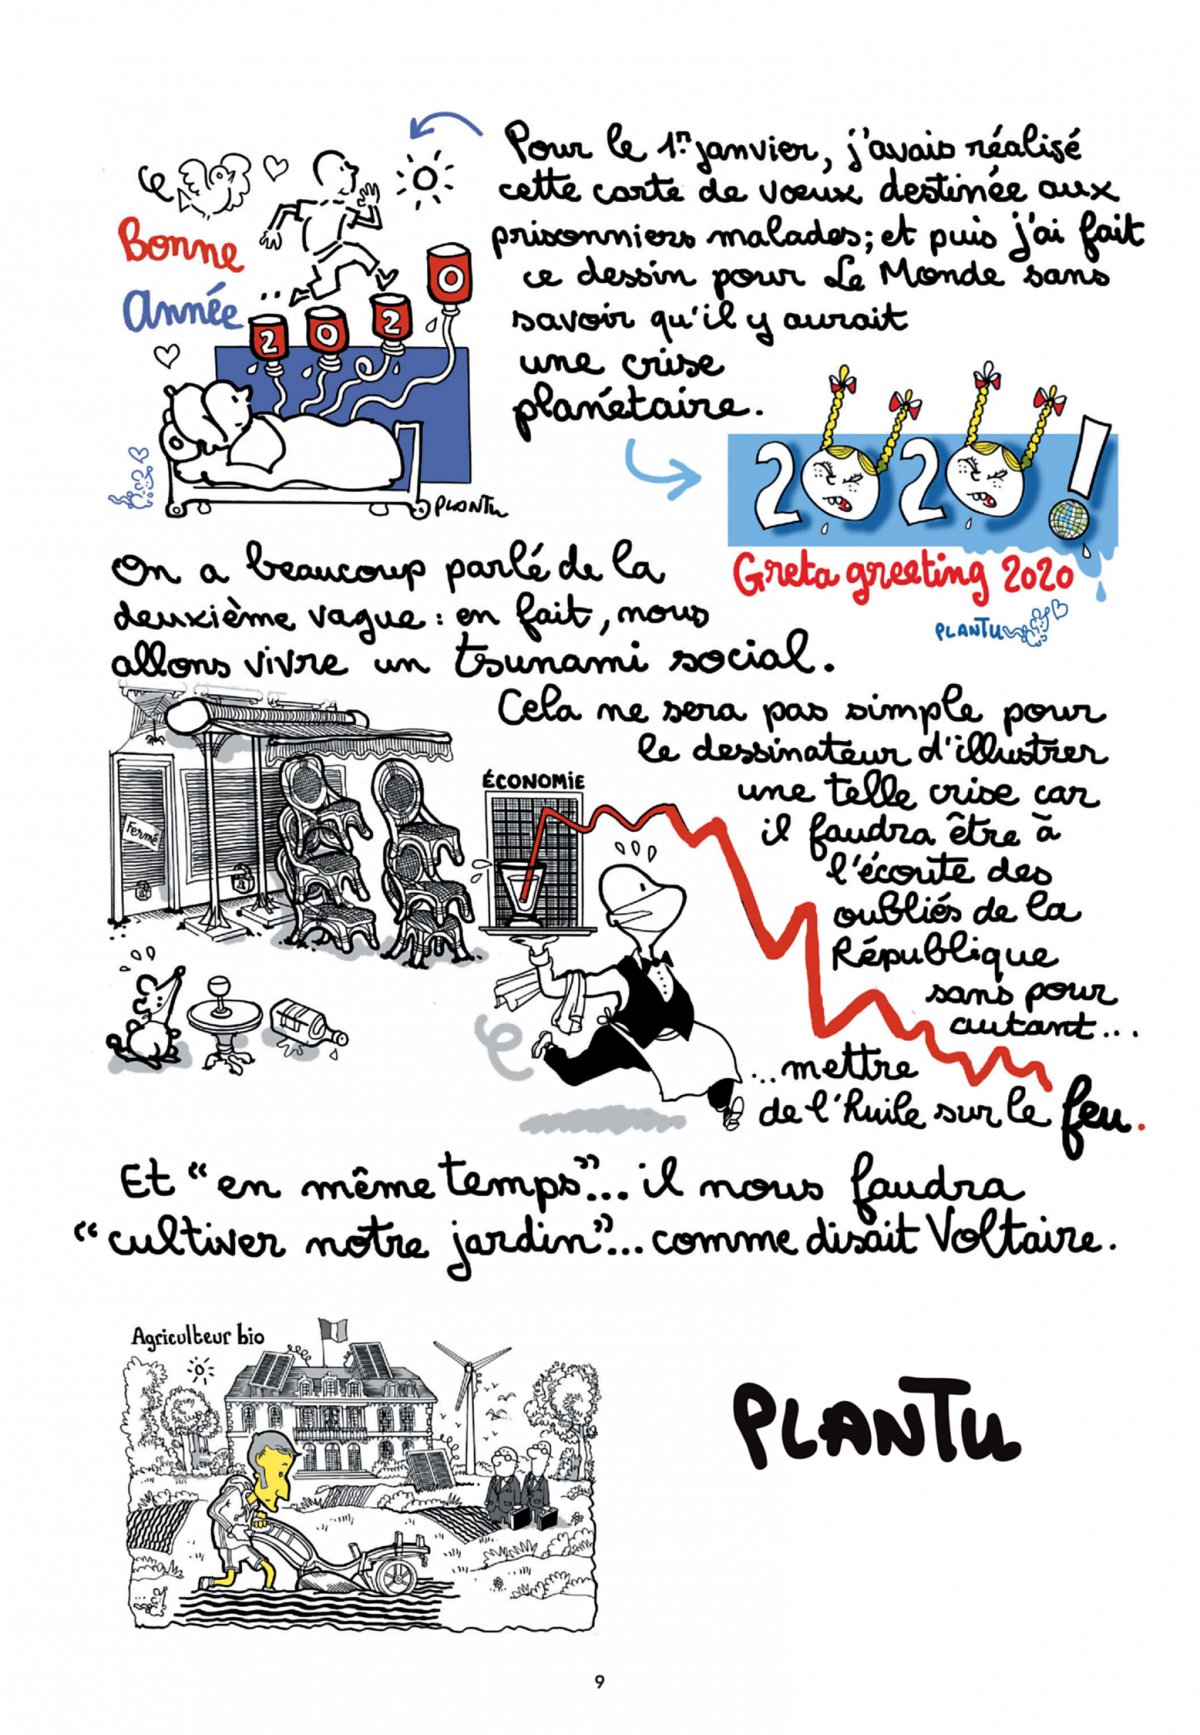 Pour le 1er janvier, j'avais réalisé
cette carte de vœux destinée aux
prisonniers malades; et puis j'ai fait
ce dessin pour Le Monde sans
savoir qu'il y aurait
une crise
planétaire.
Bonne
année
2 0 2 0
PLANTU
2020!
Greta greeting 2020
PLANTU
On a beaucoup parlé de la
deuxième vague : en fait, nous
allons vivre un tsunami social.
Cela ne sera pas simple pour
le dessinateur d'illustrer
une telle crise car
il faudra être à
l'écoute des
oubliés de la
République
sans pour
autant...
...mettre
de l'huile sur le feu.
Fermé
ÉCONOMIE
Et "en même temps"... il nous faudra
"cultiver notre jardin"... comme disait Voltaire.
Agriculteur bio
PLANTU
9